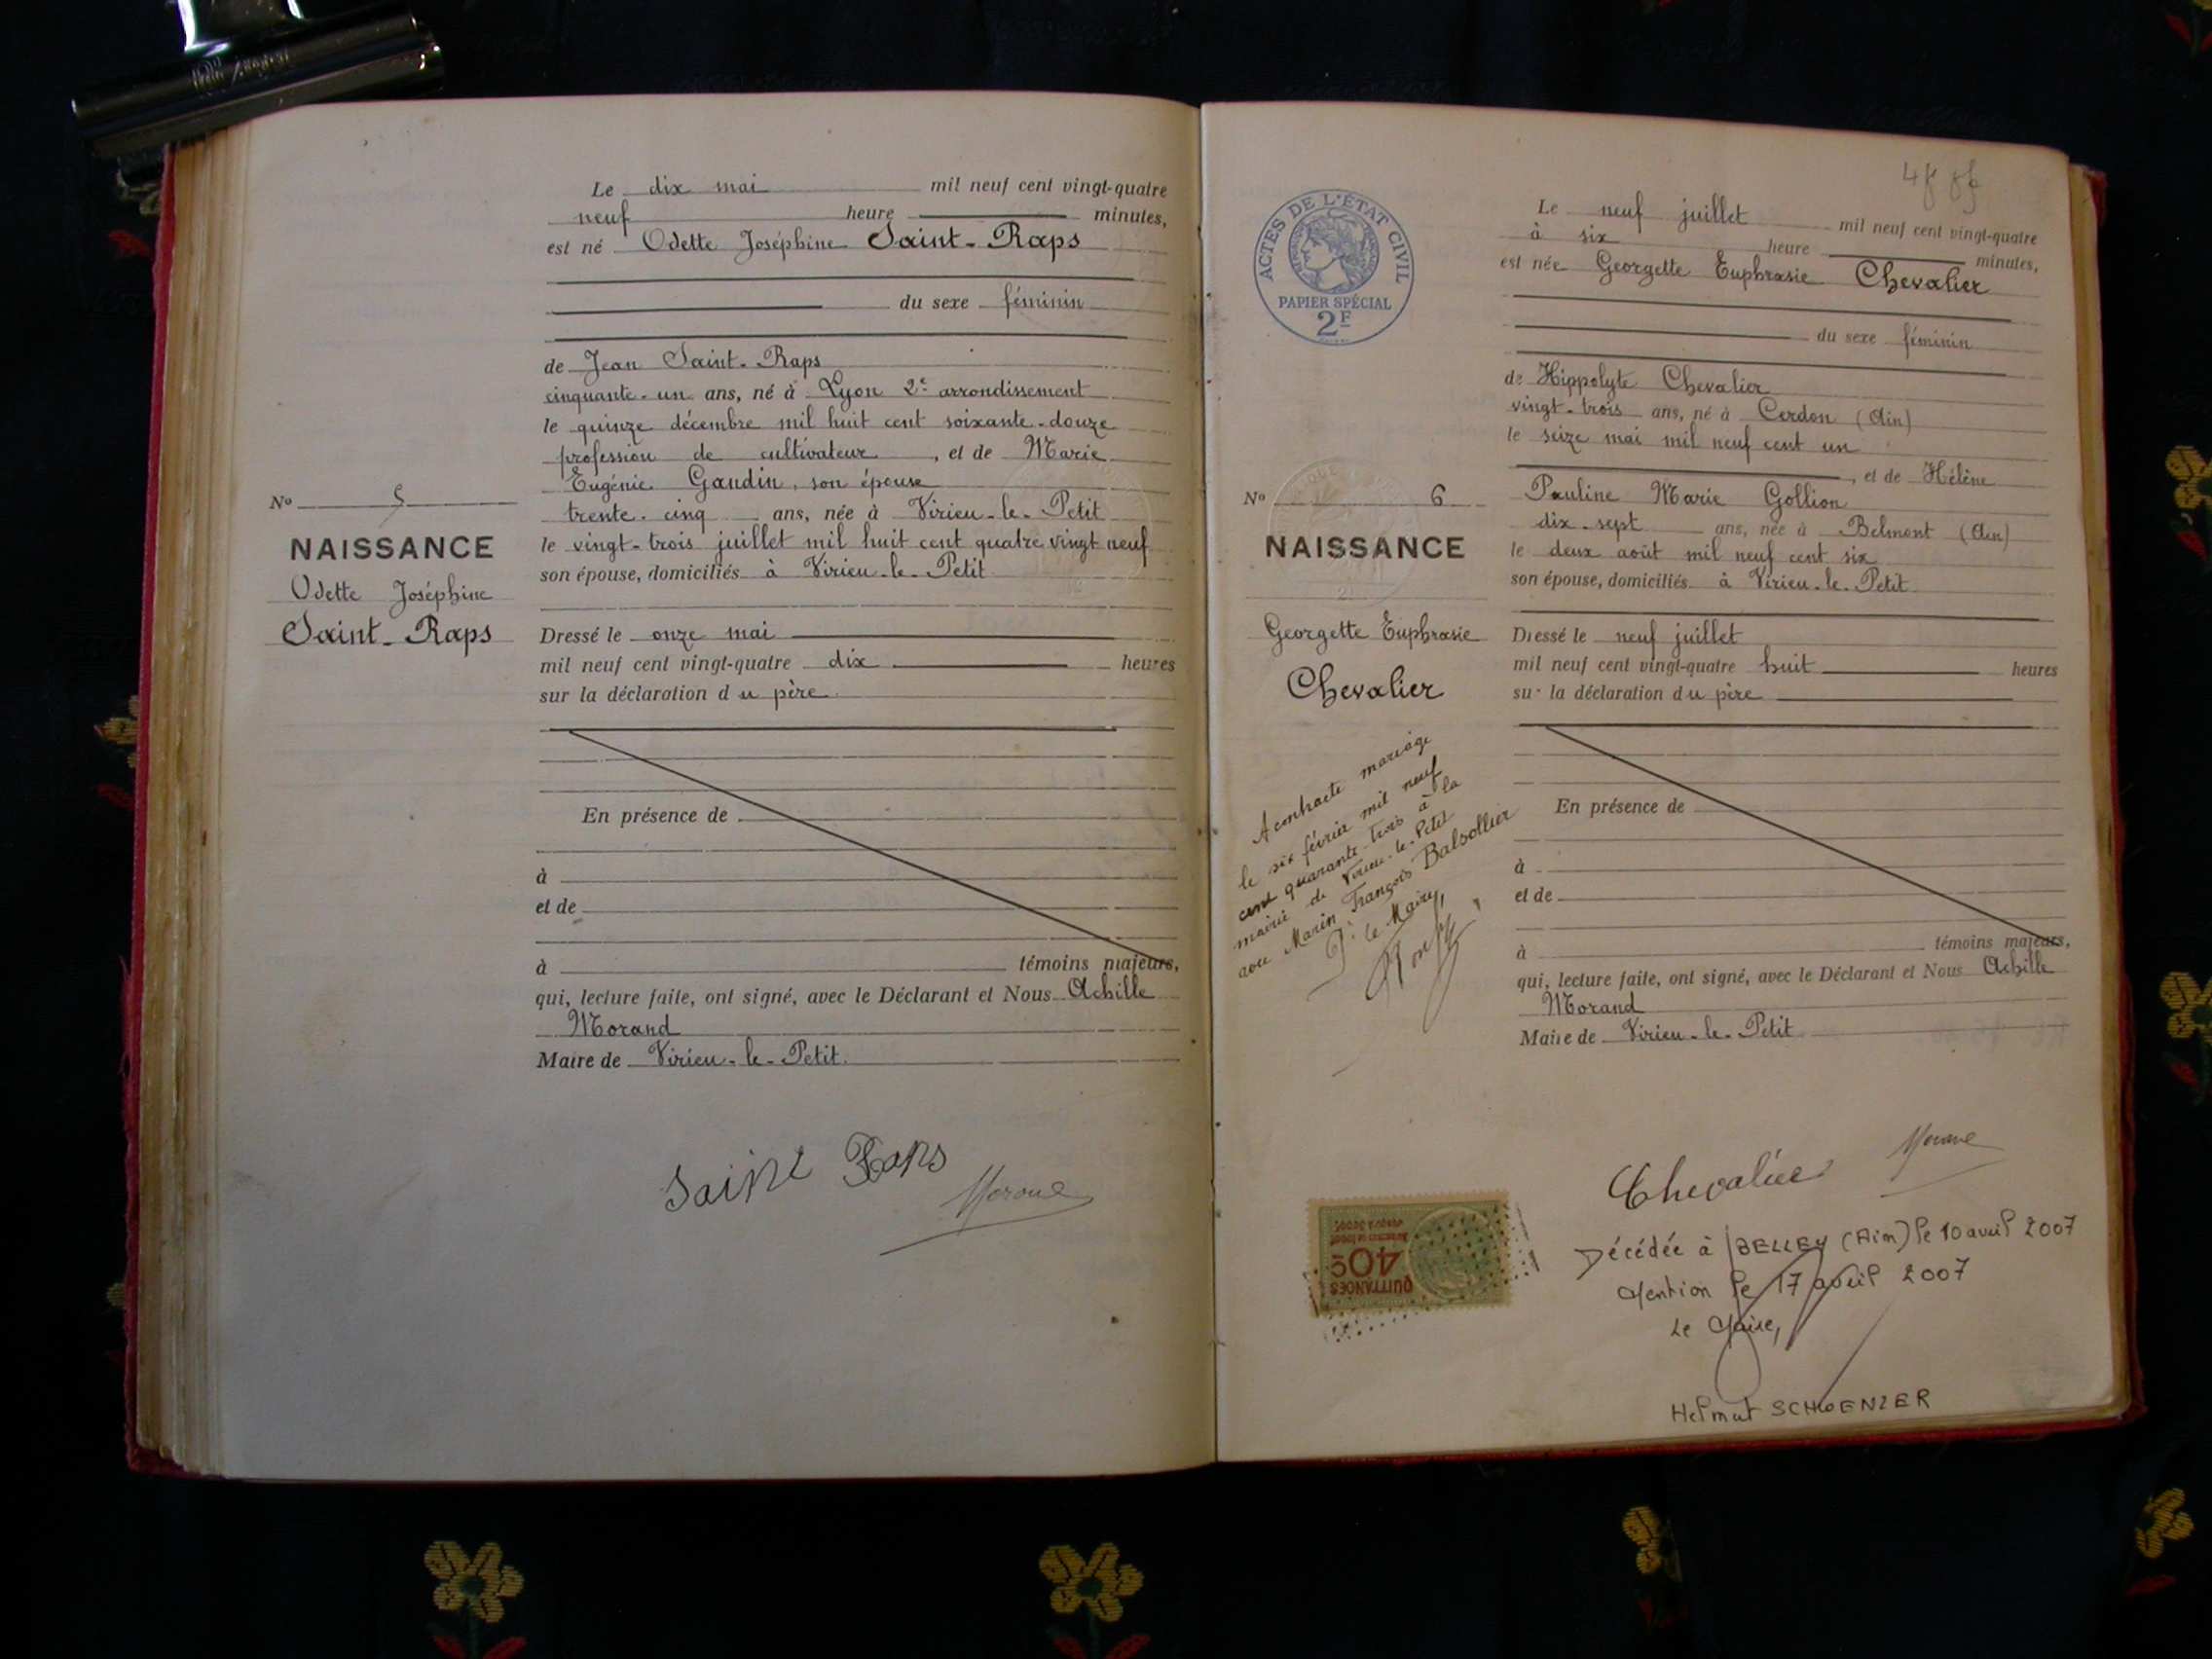 Le dix mai mil neuf cent vingt-quatre
neuf heure minutes,
est né Odette Joséphine Saint-Raps
du sexe féminin
de Jean Saint-Raps
cinquante-un ans, né à Lyon 2e arrondissement
le quinze décembre mil huit cent soixante-douze
profession de cultivateur, et de Marie
Eugénie Gandin, son épouse
trente-cinq ans, née à Virieu-le-Petit
le vingt-trois juillet mil huit cent quatre vingt neuf
son épouse, domiciliés à Virieu-le-Petit
No 5
NAISSANCE
Odette Joséphine
Saint-Raps
Dressé le onze mai
mil neuf cent vingt-quatre dix heures
sur la déclaration du père
En présence de
à
et de
à témoins majeurs,
qui, lecture faite, ont signé, avec le Déclarant et Nous Achille
Morand
Maire de Virieu-le-Petit.
Saint Raps
ACTES DE L'ÉTAT CIVIL
PAPIER SPÉCIAL
2F
Le neuf juillet mil neuf cent vingt-quatre
à six heure minutes,
est née Georgette Euphrasie Chevalier
du sexe féminin
de Hippolyte Chevalier
vingt-trois ans, né à Cerdon (Ain)
le seize mai mil neuf cent un
, et de Hélène
Pauline Marie Gollion
dix-sept ans, née à Belmont (Ain)
le deux août mil neuf cent six
son épouse, domiciliés à Virieu-le-Petit
No 6
NAISSANCE
Georgette Euphrasie
Chevalier
Dressé le neuf juillet
mil neuf cent vingt-quatre huit heures
sur la déclaration du père
A contracté mariage
le six février mil neuf
cent quarante-trois à la
mairie de Virieu-le-Petit
avec Marin François Balsollier
Pr le Maire,
En présence de
à
et de
à témoins majeurs,
qui, lecture faite, ont signé, avec le Déclarant et Nous Achille
Morand
Maire de Virieu-le-Petit
Chevalier
QUITTANCES
40c
Décédée à BELLEY (Ain) le 10 avril 2007
Mention le 17 avril 2007
Le Maire,
Helmut SCHWENZER